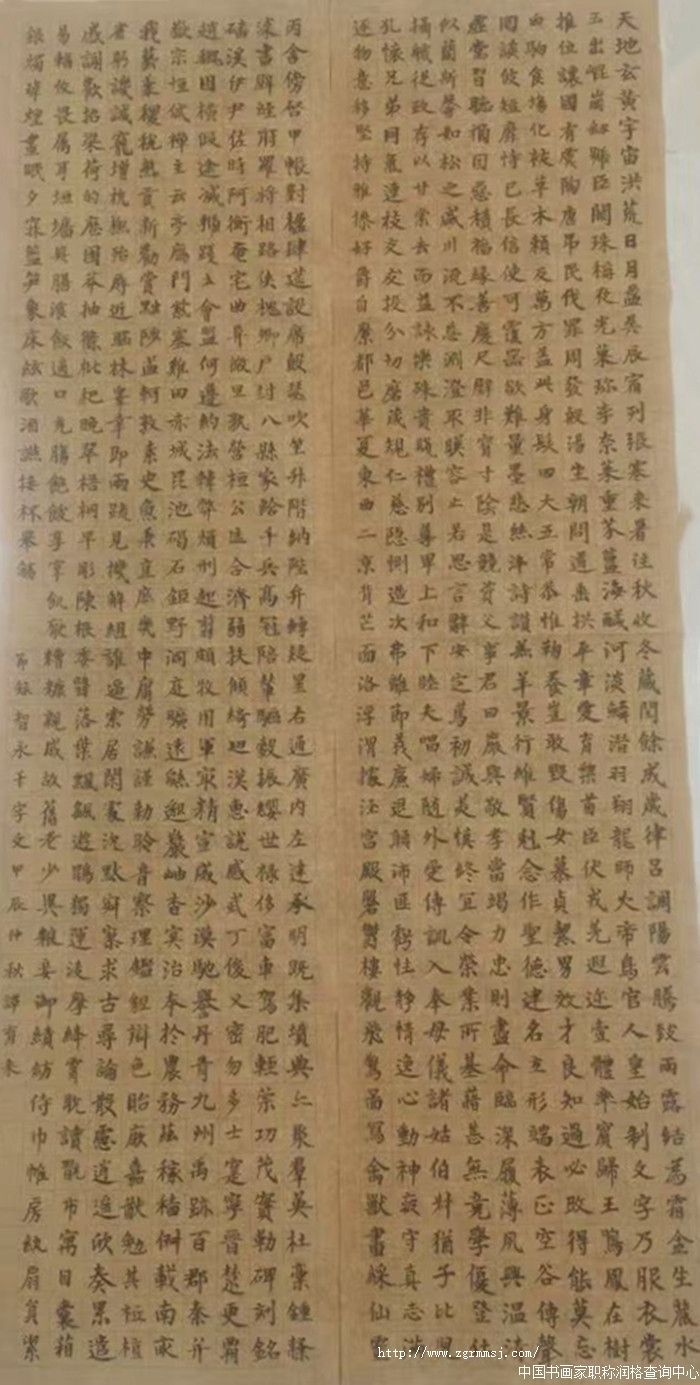 天地玄黃宇宙洪荒日月盈昃辰宿列張寒来暑往秋收冬藏閏餘成歲律呂調陽雲騰致雨露結為霜金生麗水
玉出崐崗劒號巨闕珠稱夜光菓珎李柰菜重芥薑海鹹河淡鱗潛羽翔龍師火帝鳥官人皇始制文字乃服衣裳
推位讓國有虞陶唐弔民伐罪周發殷湯坐朝問道垂拱平章愛育黎首臣伏戎羌遐迩壹體率賓歸王鳴鳳在樹
白駒食場化被草木賴及萬方盖此身髮四大五常恭惟鞠養豈敢毀傷女慕貞絜男效才良知過必改得能莫忘
罔談彼短靡恃己長信使可覆器欲難量墨悲絲淬詩讚羔羊景行維賢剋念作聖德建名立形端表正空谷傳聲
虛堂習聽禍因惡積福緣善慶尺璧非寶寸陰是競資父事君曰嚴與敬孝當竭力忠則盡命臨深履薄夙興温凊
似蘭斯馨如松之盛川流不息淵澄取暎容止若思言辭安定篤初誠美慎終宜令榮業所基藉甚無竟學優登仕
攝職從政存以甘棠去而益詠樂殊貴賤禮別尊卑上和下睦夫唱婦隨外受傅訓入奉母儀諸姑伯叔猶子比兒
孔懷兄弟同氣連枝交友投分切磨箴規仁慈隱惻造次弗離節義廉退顛沛匪虧性静情逸心動神疲守真志滿
逐物意移堅持雅操好爵自縻都邑華夏東西二京背芒面洛浮渭據涇宮殿磐鬱樓觀飛驚圖寫禽獸畫綵仙靈
丙舍傍啓甲帳對楹肆筵設席鼓瑟吹笙升階納陛弁轉疑星右通廣內左達承明既集墳典亦聚羣英杜稾鍾隸
漆書壁經府羅將相路俠槐卿户封八縣家給千兵高冠陪輦驅轂振纓世禄侈富車駕肥輕策功茂實勒碑刻銘
磻溪伊尹佐時阿衡奄宅曲阜微旦孰營桓公匡合濟弱扶傾綺迴漢惠說感武丁俊乂密勿多士寔寧晉楚更霸
趙魏困橫假途滅虢踐土會盟何遵約法韓弊煩刑起翦頗牧用軍最精宣威沙漠馳譽丹青九州禹跡百郡秦并
嶽宗恒岱禪主云亭鴈門紫塞雞田赤城昆池碣石鉅野洞庭曠遠緜邈巖岫杳冥治本於農務茲稼穡俶載南畝
我藝黍稷稅熟貢新勸賞黜陟孟軻敦素史魚秉直庶幾中庸勞謙謹勑聆音察理鑑貌辯色貽厥嘉猷勉其祗植
省躬譏誡寵增抗極殆辱近恥林皋幸即兩疏見機解組誰逼索居閑處沉默寂寥求古尋論散慮逍遥欣奏累遣
慼謝歡招渠荷的歷園莽抽條枇杷晚翠梧桐早彫陳根委翳落葉飄颻遊鵾獨運凌摩絳霄耽讀翫市寓目囊箱
易輶攸畏屬耳垣墻具膳飡飯適口充腸飽飫享宰飢猒糟糠親戚故舊老少異粮妾御績紡侍巾帷房紈扇員潔
銀燭煒煌晝眠夕寐藍笋象床絃歌酒讌接杯舉觴
节録智永千字文甲辰仲秋譚育
http://www.zgrmmsj.com/
中国书画家职称润格查询中心